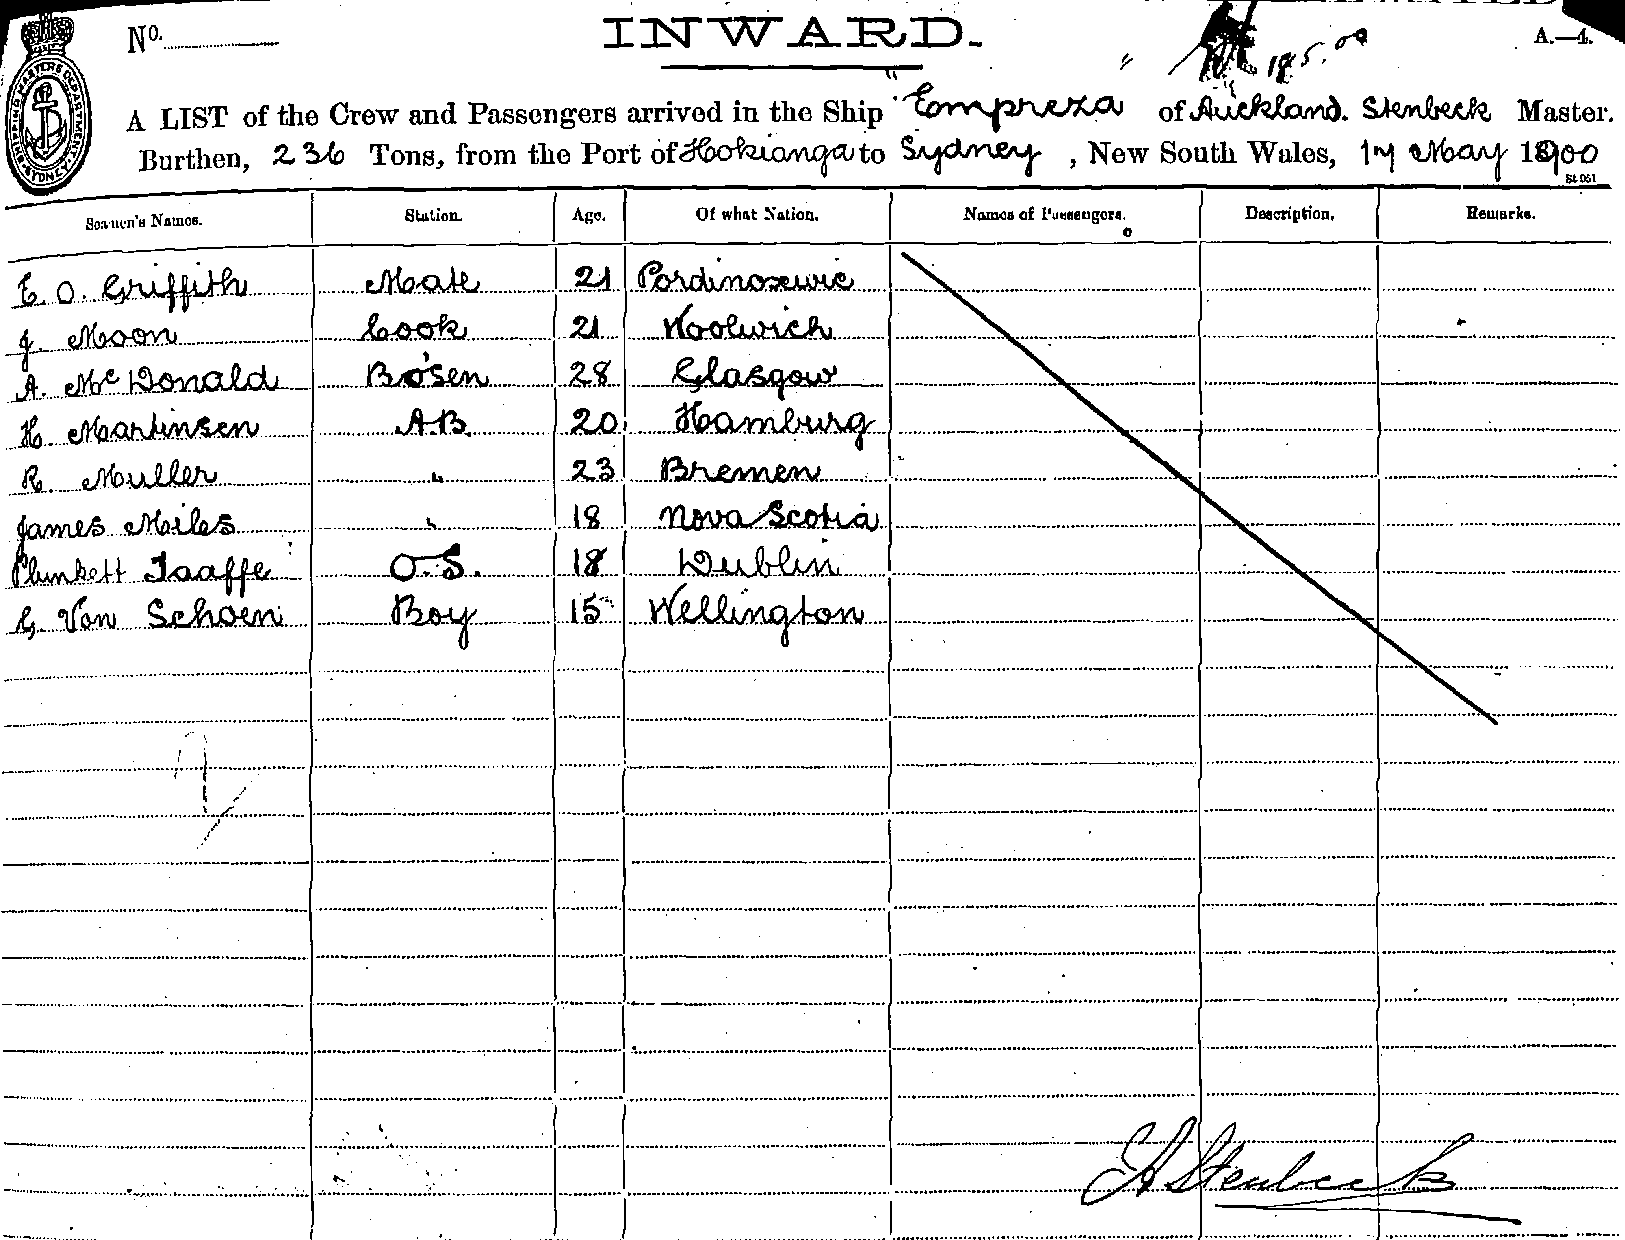 No.
INWARD.
18.5.00
A.—4.
A LIST of the Crew and Passengers arrived in the Ship "Empreza" of Auckland. Stenbeck Master.
Burthen, 236 Tons, from the Port of Hokianga to Sydney, New South Wales, 17 May 1900
St 051
Seamen's Names. Station. Age. Of what Nation. Names of Passengers. Description. Remarks.
E. O. Griffith Mate 21
J. Moon Cook 21 Woolwich
A. McDonald Bo'sen 28 Glasgow
H. Martinsen A.B. 20 Hamburg
R. Muller " 23 Bremen
James Miles " 18 Nova Scotia
Plunkett Taaffe O.S. 18 Dublin
G. Von Schoen Boy 15 Wellington
A Stenbeck